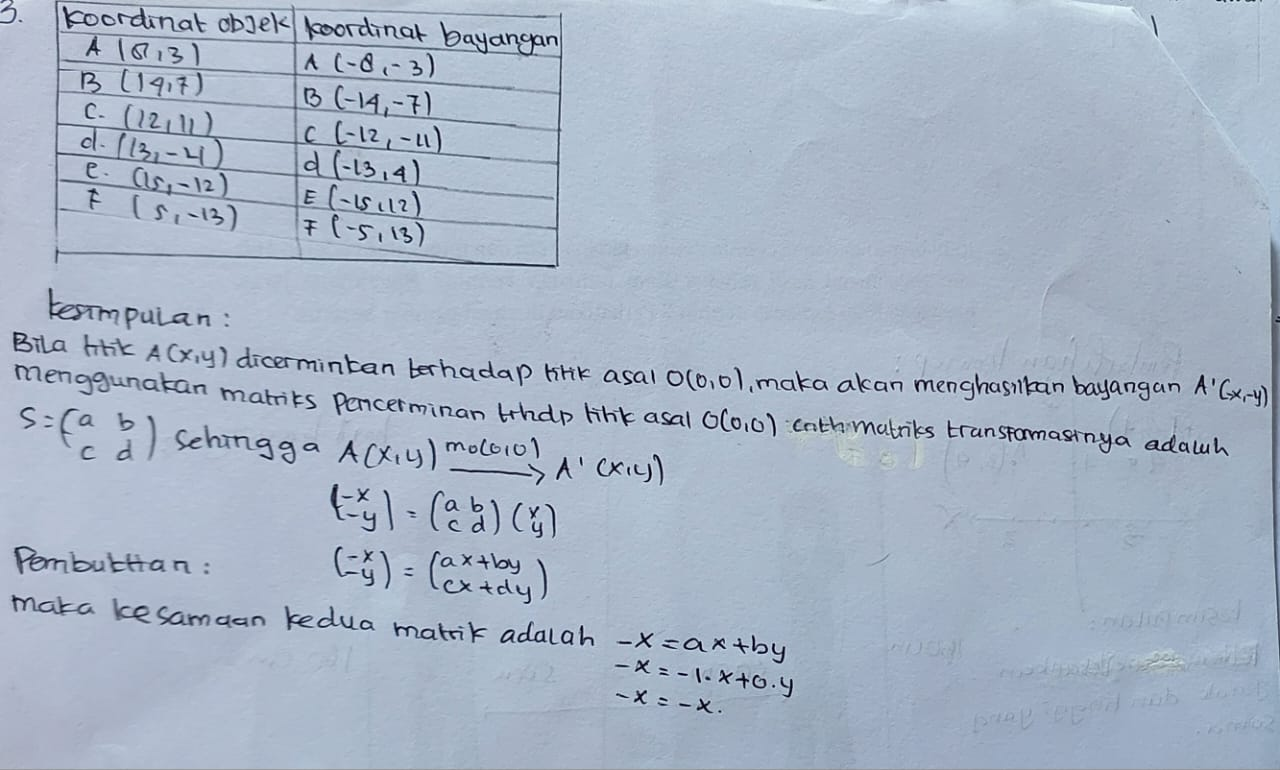 3.
koordinat objek koordinat bayangan
A (8,3) A (-8,-3)
B (14,7) B (-14,-7)
C. (12,11) C (-12,-11)
d. (13,-4) d (-13,4)
e. (15,-12) E (-15,12)
F (5,-13) F (-5,13)
kesimpulan:
Bila titik A(x,y) dicerminkan terhadap titik asal O(0,0), maka akan menghasilkan bayangan A'(-x,-y)
menggunakan matriks pencerminan trhdp titik asal O(0,0) matriks transformasinya adalah
S = (a b
c d) sehingga A(x,y) mo(0,0) → A' (x,y)
(-x
-y) = (a b
c d) (x
y)
Pembuktian: (-x
-y) = (ax+by
cx+dy)
maka kesamaan kedua matrik adalah -x = ax+by
-x = -1.x+0.y
-x = -x.